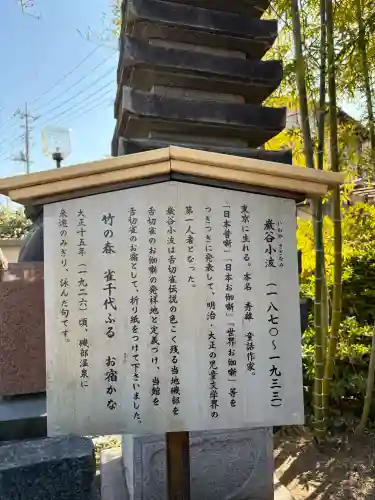 いわや さざなみ
巌谷小波 (一八七〇~一九三三)
東京に生れる。本名 秀雄 童話作家。
「日本昔噺」「日本お伽噺」「世界お伽噺」等を
つぎつぎに発表して、明治・大正の児童文学界の
第一人者となった。
巌谷小波は舌切雀伝説の色こく残る当地磯部を
舌切雀のお伽噺の発祥地と定義づけ、当館を
舌切雀のお宿として、折り紙をつけて下さいました。
竹の春 雀千代ふる お宿かな
大正十五年(一九二六)頃、磯部温泉に
来遊のみぎり、詠んだ句です。